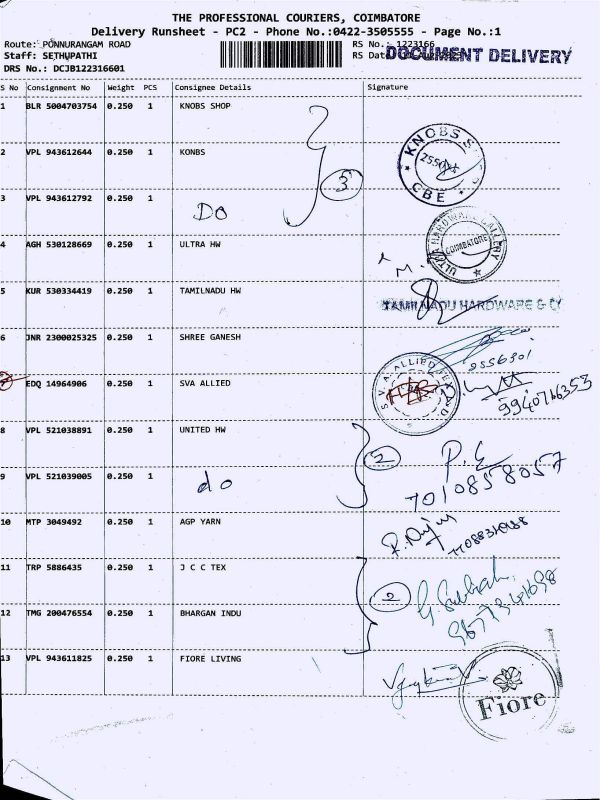 THE PROFESSIONAL COURIERS, COIMBATORE
Delivery Runsheet - PC2 - Phone No.:0422-3505555 - Page No.:1
Route: PONNURANGAM ROAD
RS No.: 1223166
Staff: SETHUPATHI
RS Dat
DOCUMENT DELIVERY
DRS No.: DCJB122316601
S No Consignment No Weight PCS Consignee Details Signature
1 BLR 5004703754 0.250 1 KNOBS SHOP
2 VPL 943612644 0.250 1 KONBS
3
KNOBS S
CBE
3 VPL 943612792 0.250 1
Do
4 AGH 530128669 0.250 1 ULTRA HW
ULTRA HARDWARE GALLERY
COIMBATORE
5 KUR 530334419 0.250 1 TAMILNADU HW
TAMILNADU HARDWARE & CY
6 JNR 2300025325 0.250 1 SHREE GANESH
2556301
7 EDQ 14964906 0.250 1 SVA ALLIED
S.V.A. ALLIED
9940716353
8 VPL 521038891 0.250 1 UNITED HW
2
9 VPL 521039005 0.250 1
do
7010858057
10 MTP 3049492 0.250 1 AGP YARN
11 TRP 5886435 0.250 1 J C C TEX
2
12 TMG 200476554 0.250 1 BHARGAN INDU
13 VPL 943611825 0.250 1 FIORE LIVING
Fiore